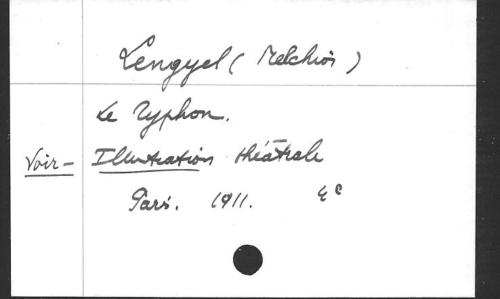 Lengyel (Melchior)
Le Typhon.
Voir - Illustration théâtrale
Paris. 1911. 4°